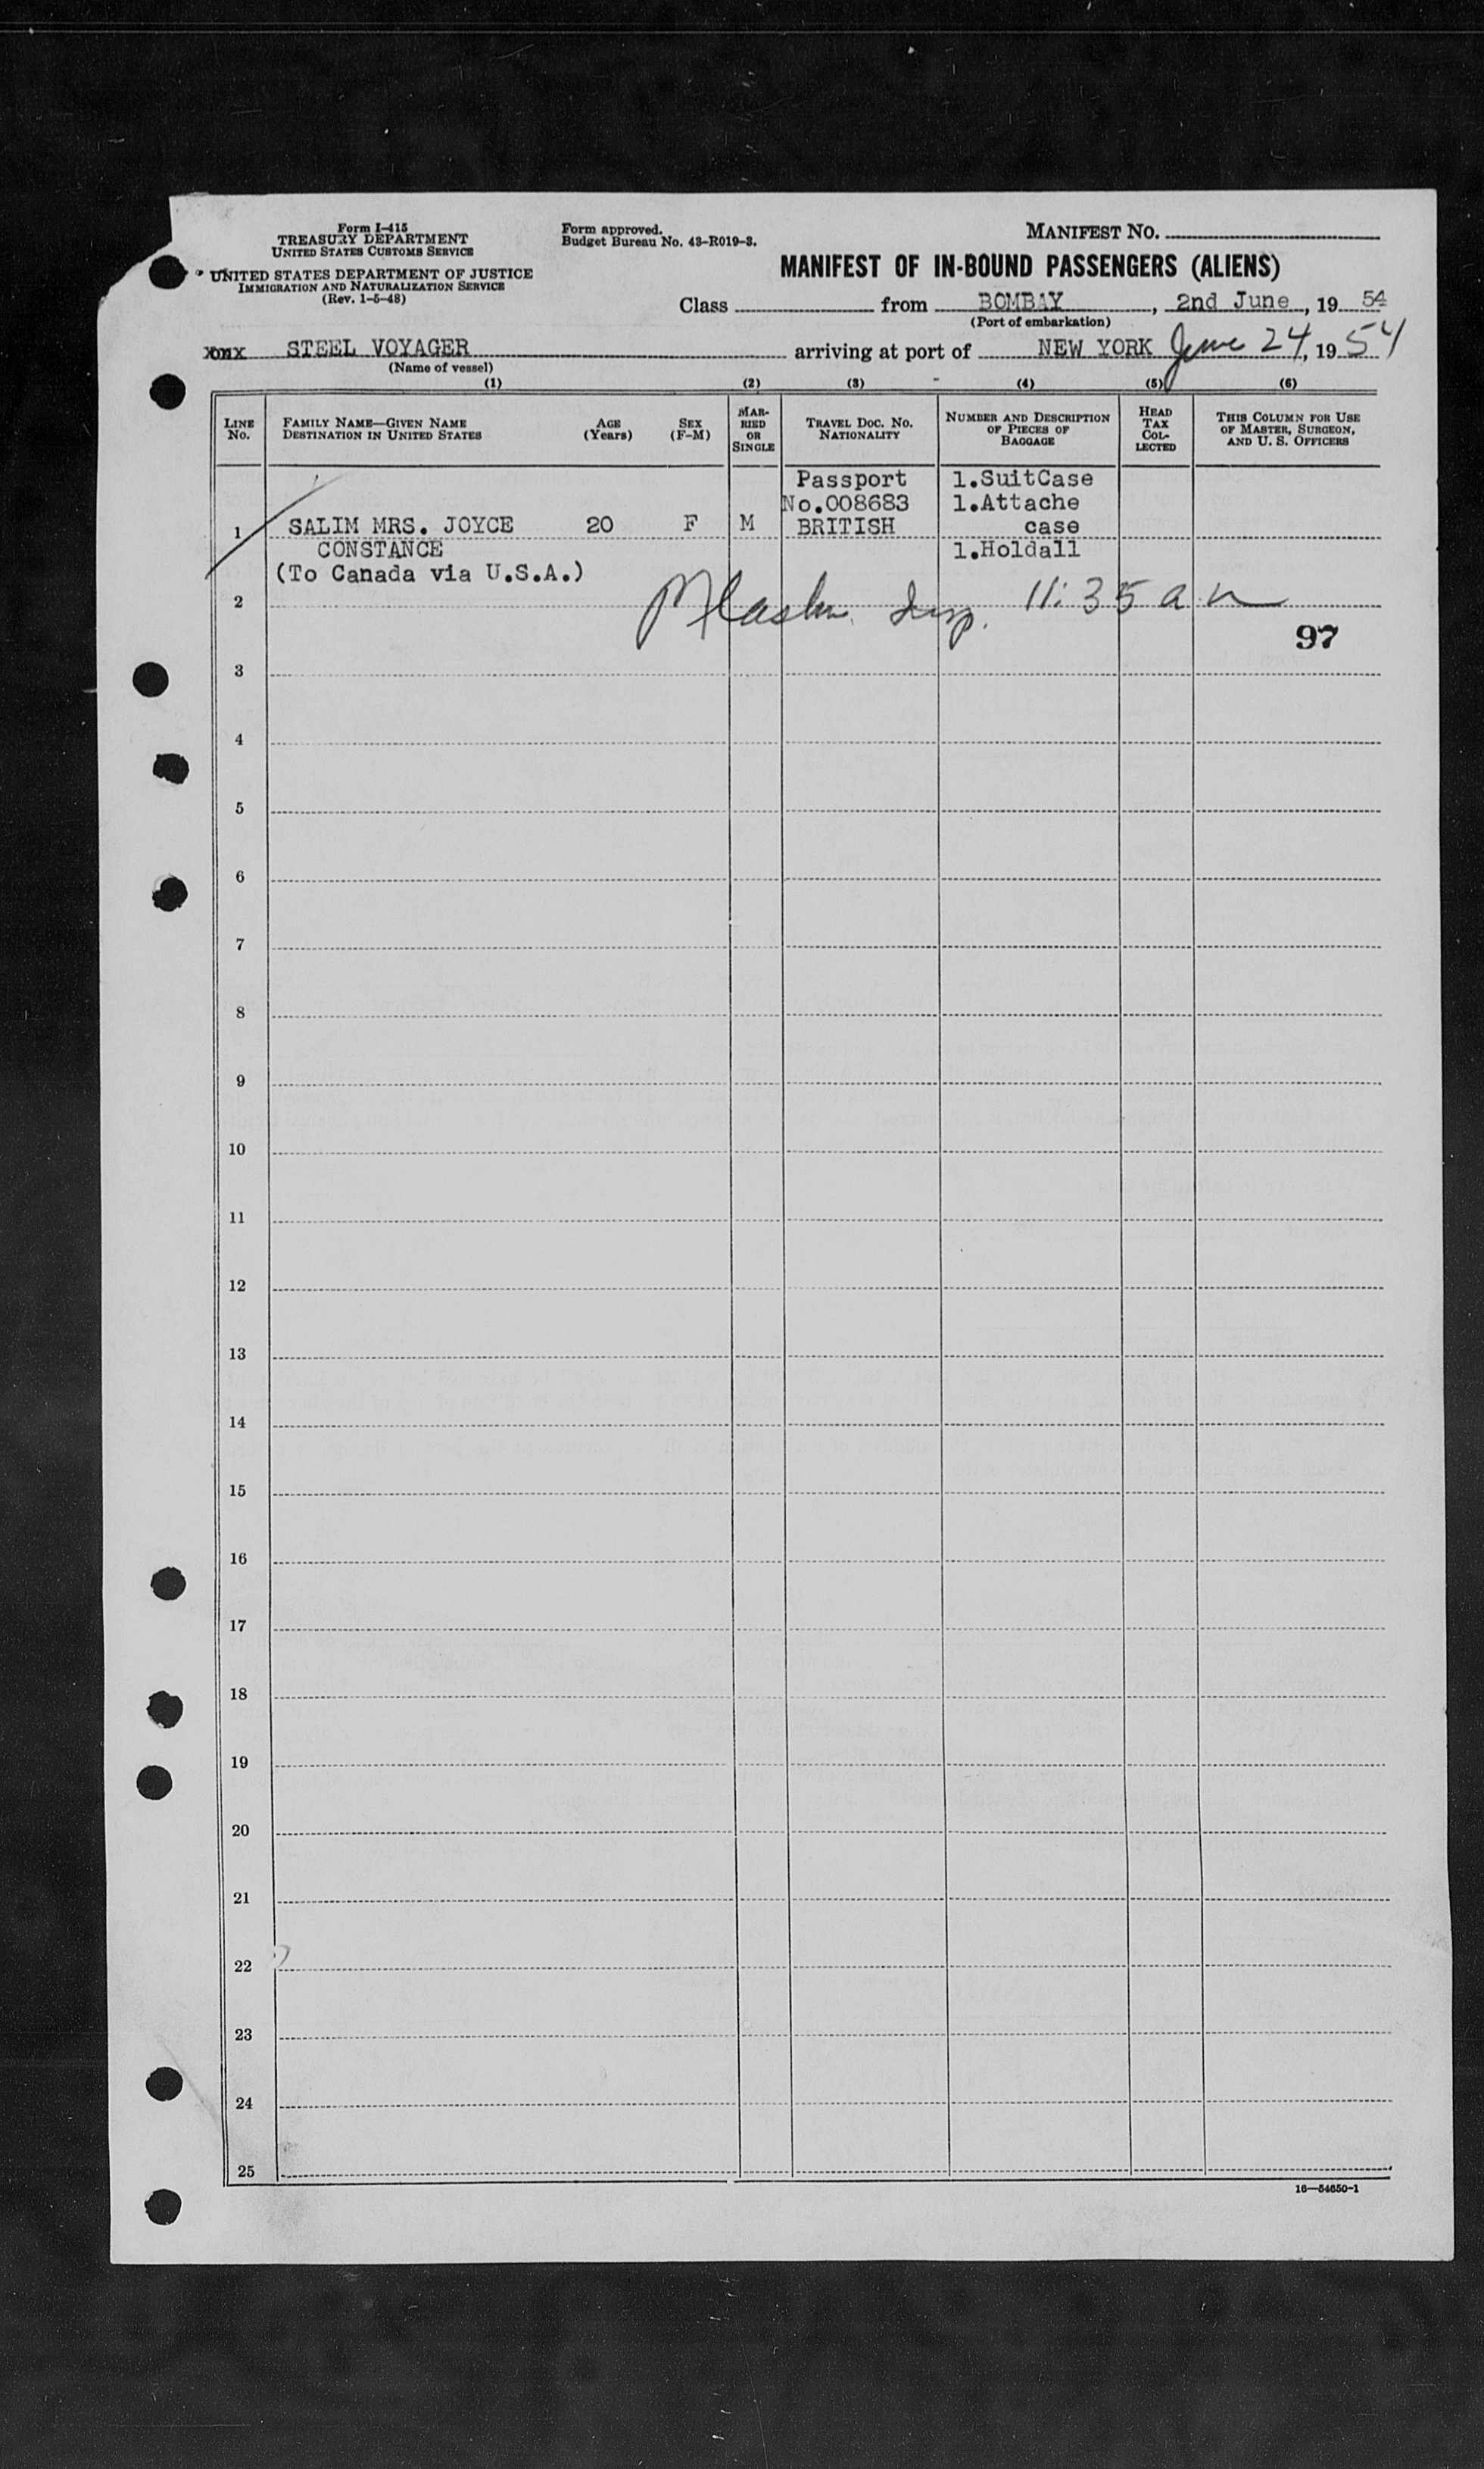 Form I-415
TREASURY DEPARTMENT
UNITED STATES CUSTOMS SERVICE
UNITED STATES DEPARTMENT OF JUSTICE
IMMIGRATION AND NATURALIZATION SERVICE
(Rev. 1-5-48)
Form approved.
Budget Bureau No. 43-R019-3.
MANIFEST NO.
MANIFEST OF IN-BOUND PASSENGERS (ALIENS)
Class from BOMBAY, 2nd June, 19 54
(Port of embarkation)
STEEL VOYAGER arriving at port of NEW YORK June 24, 19 54
(Name of vessel)
(1) (2) (3) (4) (5) (6)
LINE No.
FAMILY NAME—GIVEN NAME
DESTINATION IN UNITED STATES
AGE (Years)
SEX (F-M)
MARRIED OR SINGLE
TRAVEL DOC. NO.
NATIONALITY
NUMBER AND DESCRIPTION
OF PIECES OF
BAGGAGE
HEAD
TAX
COL-
LECTED
THIS COLUMN FOR USE
OF MASTER, SURGEON,
AND U. S. OFFICERS
Passport 1.SuitCase
No.008683 1.Attache
1 SALIM MRS. JOYCE 20 F M BRITISH case
CONSTANCE 1.Holdall
(To Canada via U.S.A.)
2 Insp. 11:35 am
97
3
4
5
6
7
8
9
10
11
12
13
14
15
16
17
18
19
20
21
22
23
24
25
16—54650-1